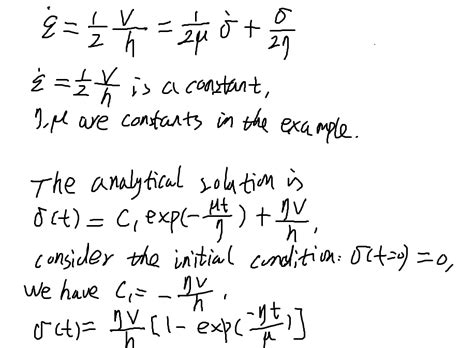 ε̇ = 1/2 V/h = 1/2μ σ̇ + σ/2η
ε̇ = 1/2 V/h is a constant,
η, μ are constants in the example.
The analytical solution is
σ(t) = C₁ exp(-μt/η) + ηV/h,
consider the initial condition: σ(t=0) = 0,
we have C₁ = - ηV/h.
σ(t) = ηV/h [1 - exp(-ηt/μ)]